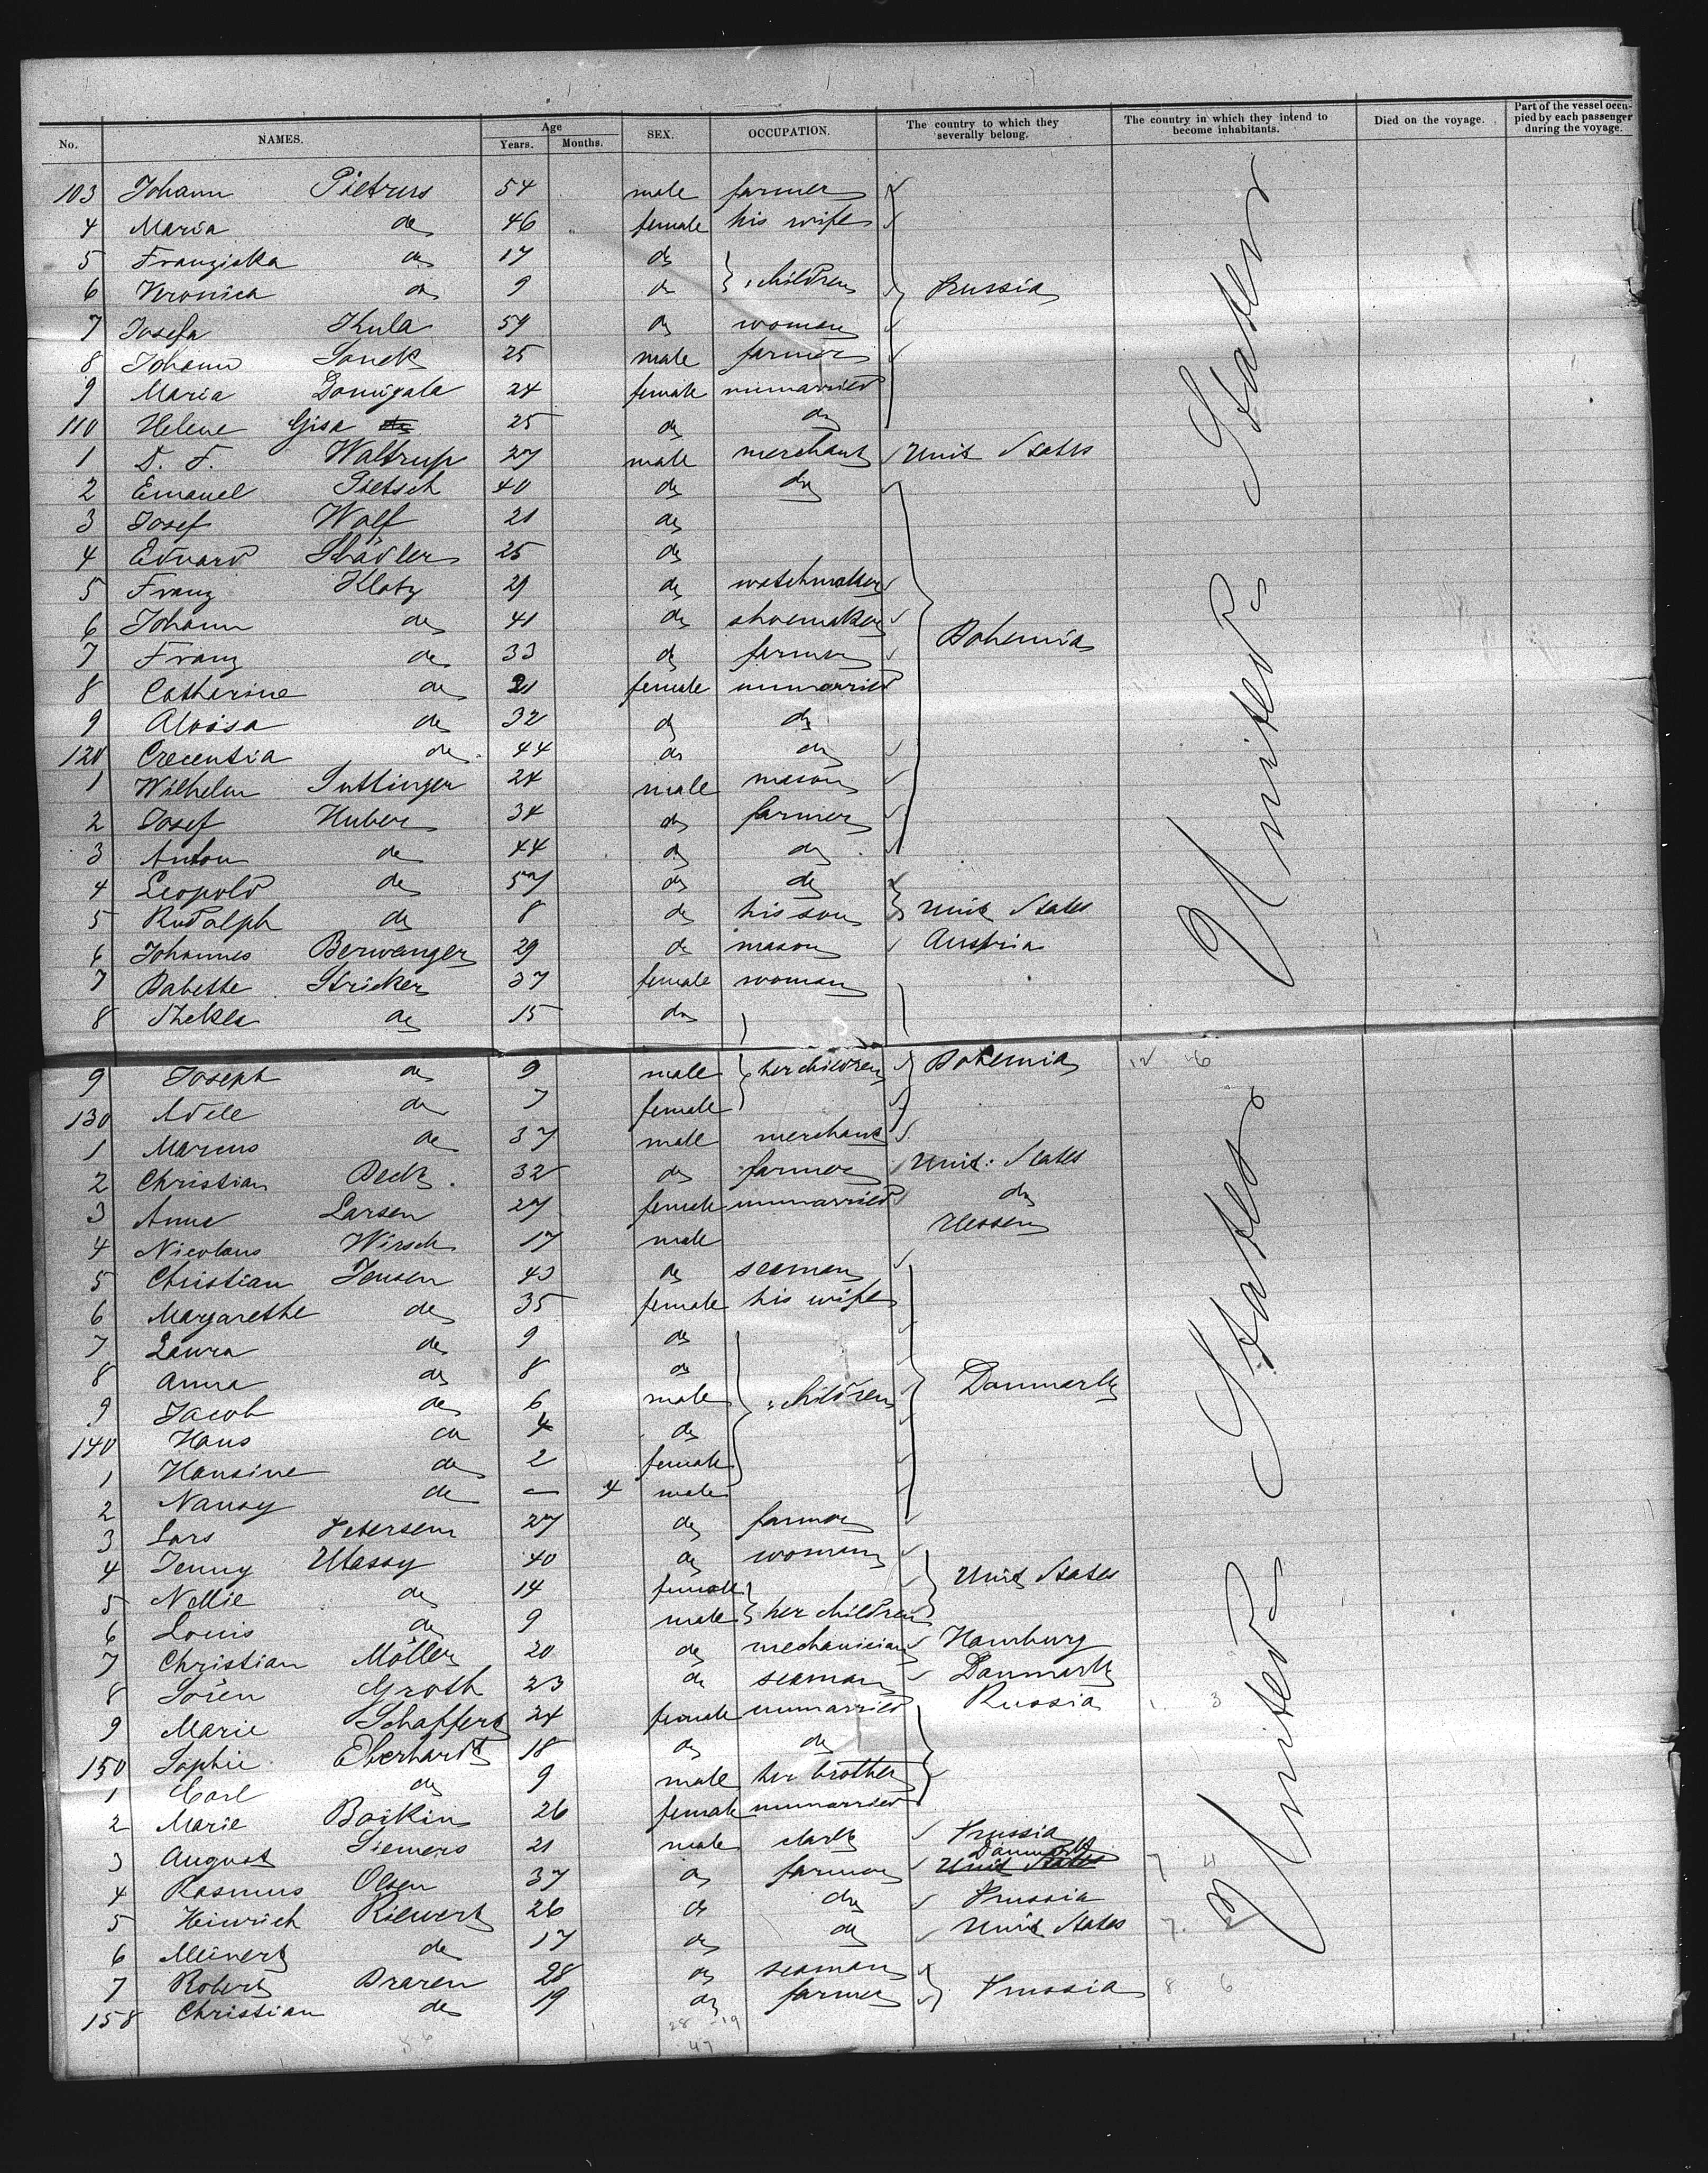 No. NAMES. Age Years. Months. SEX. OCCUPATION. The country to which they severally belong. The country in which they intend to become inhabitants. Died on the voyage. Part of the vessel occupied by each passenger during the voyage.
103 Johann Pietrus 54 male farmer
4 Maria do 46 female his wife
5 Franziska do 17 do
6 Veronica do 9 do } children Prussia
7 Josefa Kula 59 do woman
8 Johann Janek 25 male farmer
9 Maria Domigala 24 female unmarried
110 Helene Gisa do 25 do do
1 D. F. Waltrup 27 male merchant Unit States
2 Emanuel Pietsch 40 do do
3 Josef Wolf 21 do
4 Eduard Städler 25 do
5 Franz Klatz 29 do watchmaker
6 Johann do 41 do shoemaker Bohemia
7 Franz do 33 do farmer
8 Catharine do 21 female unmarried
9 Aloisa do 32 do do
120 Crecentia do 44 do do
1 Wilhelm Suttinger 24 male mason
2 Josef Huber 34 do farmer
3 Anton do 44 do do
4 Leopold do 57 do do
5 Rudolph do 8 do his son Unit States
6 Johannes Berwanger 29 do mason Austria
7 Babette Stricker 37 female woman
8 Thekla do 15 do
9 Joseph do 9 male } her children Bohemia
130 Adele do 7 female
1 Marcus do 37 male merchant
2 Christian Beck 32 do farmer Unit: States
3 Anne Larsen 27 female unmarried do
4 Nicolaus Wirsch 17 male Hessen
5 Christian Jensen 43 do seaman
6 Margarethe do 35 female his wife
7 Laura do 9 do
8 Anna do 8 do
9 Jacob do 6 male children Danmark
140 Hans do 4 do
1 Hansine do 2 female
2 Nansy do — 4 male
3 Lars Petersen 27 do farmer
4 Jenny Utassy 40 do woman
5 Nellie do 14 female Unit States
6 Louis do 9 male } her children
7 Christian Möller 20 do mechanician Hamburg
8 Sören Groth 23 do seaman Danmark
9 Marie Schaffert 24 female unmarried Russia
150 Sophie Eberhardt 18 do do
1 Carl do 9 male her brother
2 Marie Boikin 26 female unmarried
3 August Siemers 21 male clerk Prussia
4 Rasmus Olsen 37 do farmer Unit States Danmark
5 Heinrich Riewert 26 do do Prussia
6 Meinert do 17 do do Unit States
7 Robert Draren 28 do seaman
158 Christian do 19 do farmer Prussia
United States
United States
28 - 19
47